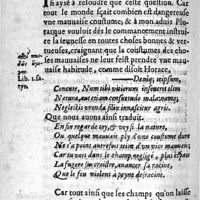 aysé à resoudre que ceste question. Car
tout le monde sçait combien est dangereuse
vne mauuaise coustume, & à mon aduis Plu-
tarque vouloit dés le commancement instruire
la ieunesse en toutes choses bonnes & ver-
tueuses, craignant que la coustume des cho-
ses mauuaises ne leur feist prendre vne mau-
uaise habitude, comme disoit Horace,
Lib. 1. sa-
tyr.
Denique teipsum,
Concute, Num tibi vitiorum inseuerit olim
Natura, aut etiam consuetudo mala: namq;
Neglectis vrenda filix innascitur agris.
Que nous auons ainsi traduit.
En fin regarde toy, & voy si la nature,
Ou, quelque mauuais ply d'vne coustume dure
N'a
Car tu vois dans le champ, neglige, plus espaisse
La fugere s'accroistre, auancer sa racine,
Que le feu violent à peyne desracine.
Car tout ainsi que les champs qu'on laisse